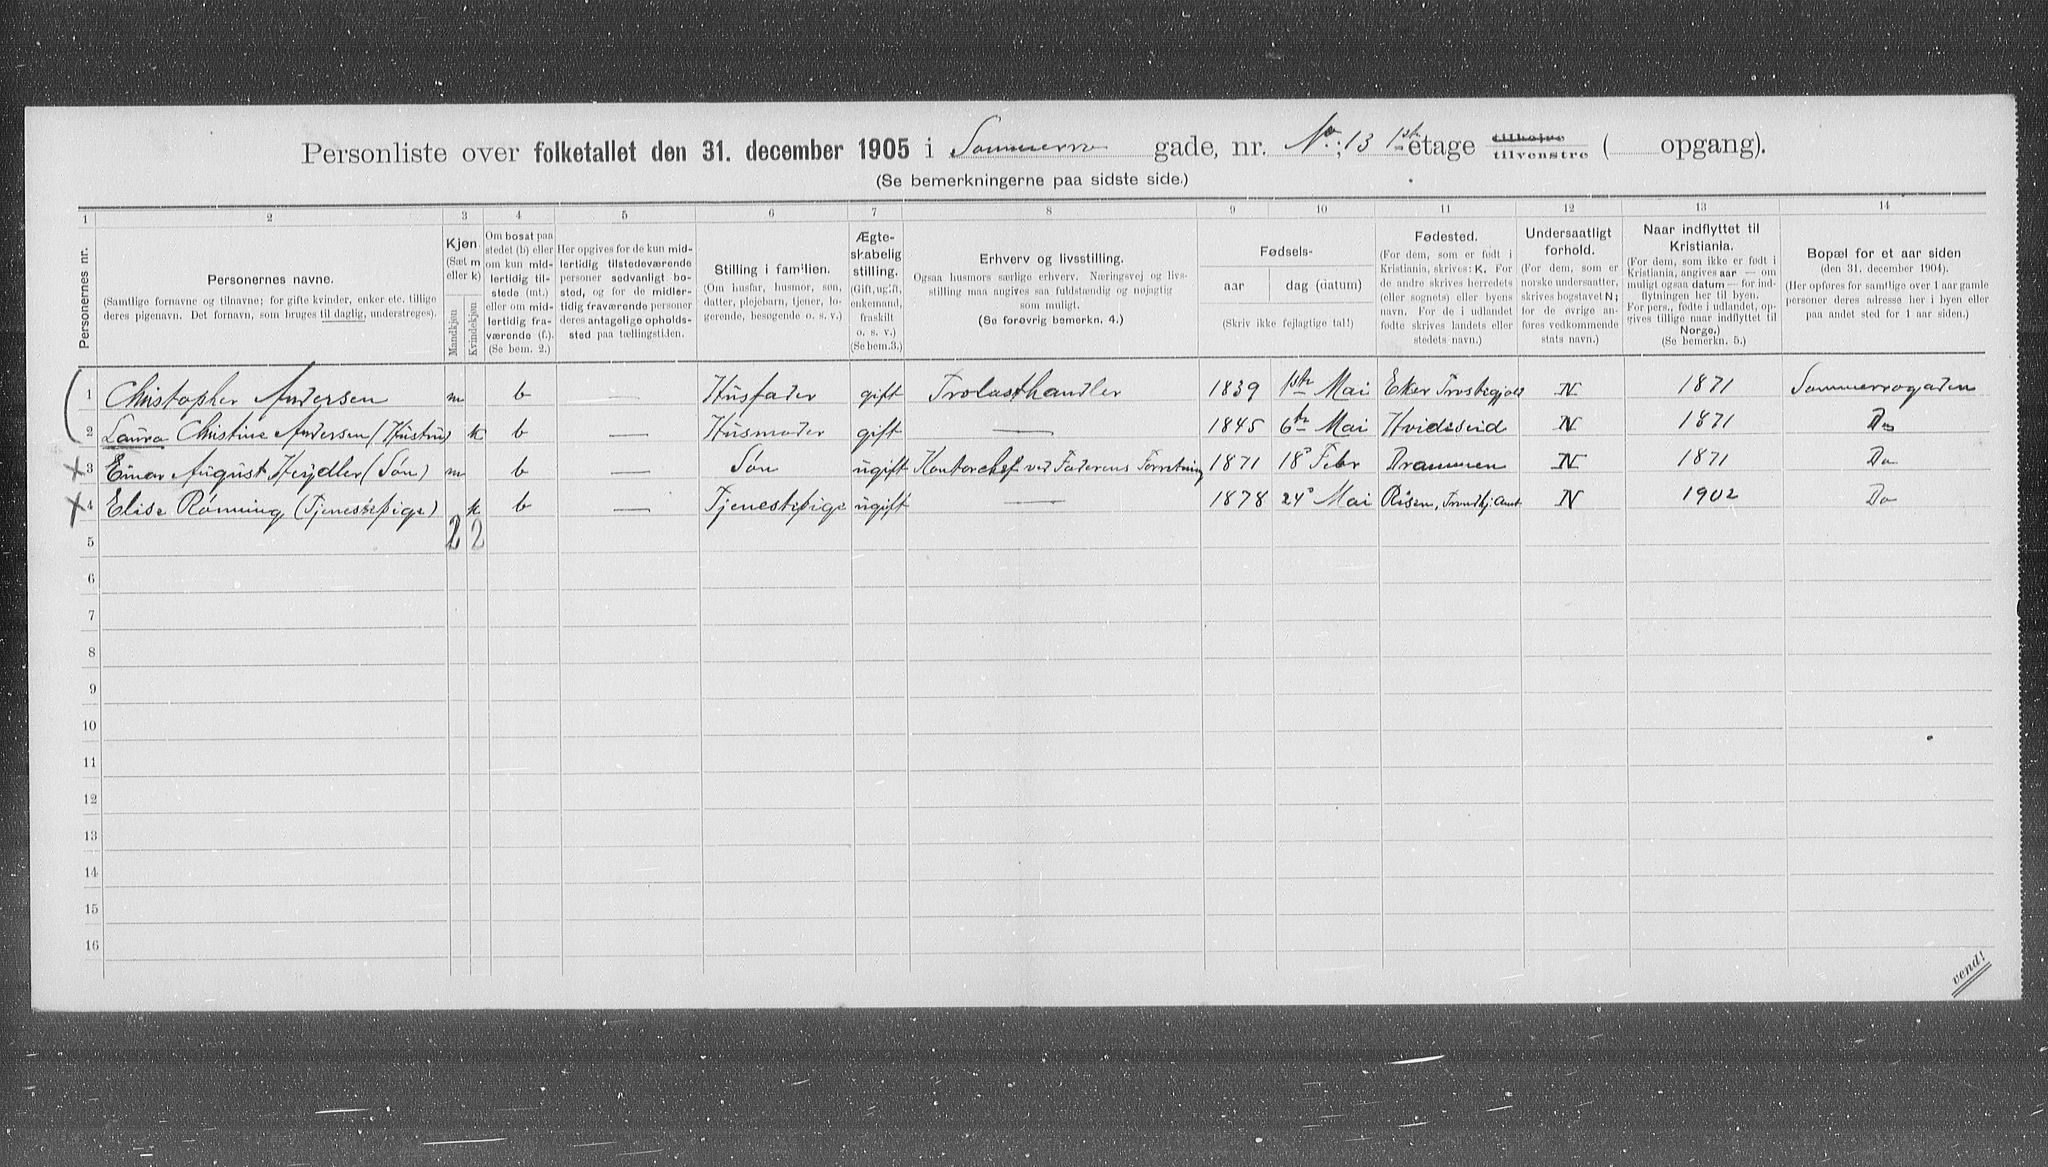 Personliste over folketallet den 31. december 1905 i Sommerro gade, nr. No.; 13 1ste etage tilhøjre tilvenstre ( opgang).
(Se bemerkningerne paa sidste side.)
1 2 3 4 5 6 7 8 9 10 11 12 13 14
Personernes nr.
Personernes navne.
(Samtlige fornavne og tilnavne; for gifte kvinder, enker etc. tillige
deres pigenavn. Det fornavn, som bruges til daglig, understreges).
Kjøn
(Sæt m
eller k)
Mandkjøn
Kvindekjøn
Om bosat paa
stedet (b) eller
om kun mid-
lertidig til-
stede (mt.)
eller om mid-
lertidig fra-
værende (f.).
(Se bem. 2.)
Her opgives for de kun mid-
lertidig tilstedeværende
personer sedvanligt bo-
sted, og for de midler-
tidig fraværende personer
deres antagelige opholds-
sted paa tællingstiden.
Stilling i familien.
(Om husfar, husmor, søn,
datter, plejebarn, tjener, lo-
gerende, besøgende o. s. v.)
Ægte-
skabelig
stilling.
(Gift, ugift,
enkemand,
fraskilt
o. s. v.)
(Se bem. 3.)
Erhverv og livsstilling.
Ogsaa husmors særlige erhverv. Næringsvej og livs-
stilling maa angives saa fuldstændig og nøjagtig
som muligt.
(Se forøvrig bemerkn. 4.)
Fødsels-
aar
dag (datum)
(Skriv ikke fejlagtige tal!)
Fødested.
(For dem, som er født i
Kristiania, skrives: K. For
de andre skrives herredets
(eller sognets) eller byens
navn. For de i udlandet
fødte skrives landets eller
stedets navn.)
Undersaatligt
forhold.
(For dem, som er
norske undersaatter,
skrives bogstavet N;
for de øvrige an-
føres vedkommende
stats navn.)
Naar indflyttet til
Kristiania.
(For dem, som ikke er født i
Kristiania, angives aar — om
muligt ogsaa datum — for ind-
flytningen her til byen.
For pers., fødte i udlandet, op-
gives tillige naar indflyttet til
Norge.)
(Se bemerkn. 5.)
Bopæl for et aar siden
(den 31. december 1904).
(Her opføres for samtlige over 1 aar gamle
personer deres adresse her i byen eller
paa andet sted for 1 aar siden.)
1 Christopher Andersen m b — Husfader gift Trælasthandler 1839 1ste Mai Eker N 1871 Sommerrogaden
2 Laura Christine Andersen (Hustru) k b — Husmoder gift — 1845 6te Mai Hvideseid N 1871 Do
3 Einar August Heydler (Søn) m b — Søn ugift Kontorchef ved Faderens Forretning 1871 18 Febr Drammen N 1871 Do
4 Elise Rønning (Tjenestepige) k b — Tjenestepige ugift — 1878 24 Mai Risen, Trondhj. Amt N 1902 Do
2 2
5
6
7
8
9
10
11
12
13
14
15
16
vend!